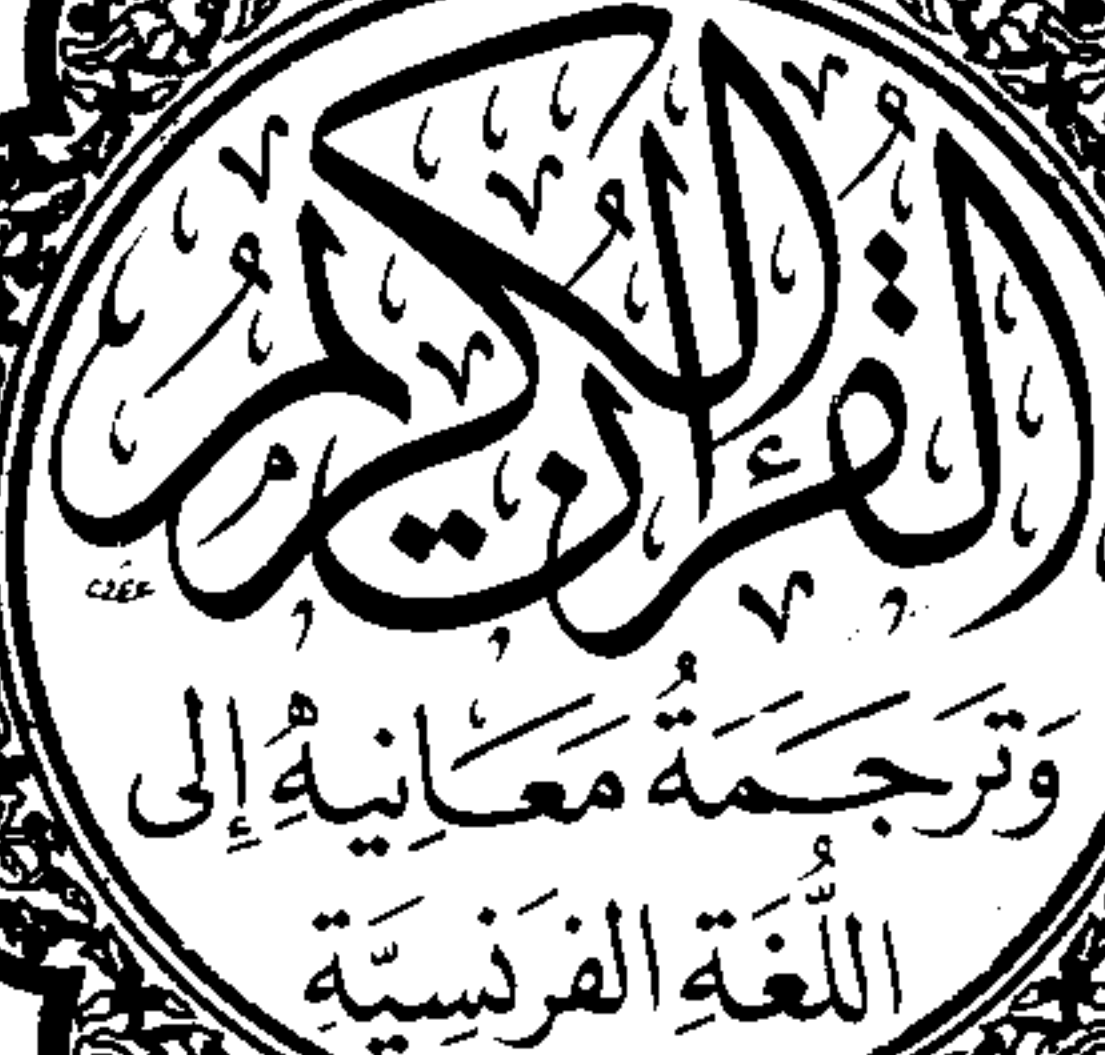 القرآن الكريم
وَتَرجَمَةُ مَعَانِيهُِ إِلى
اللُّغَةِ الفرَنسِيَّةِ